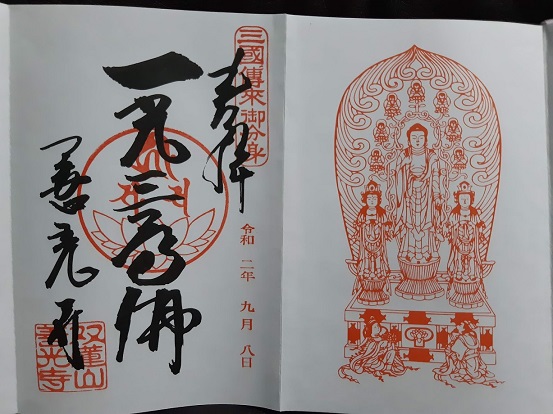 三國傳來御分身
奉拝
令和 二年 九月 八日
一光三尊佛
善光寺
善光寺